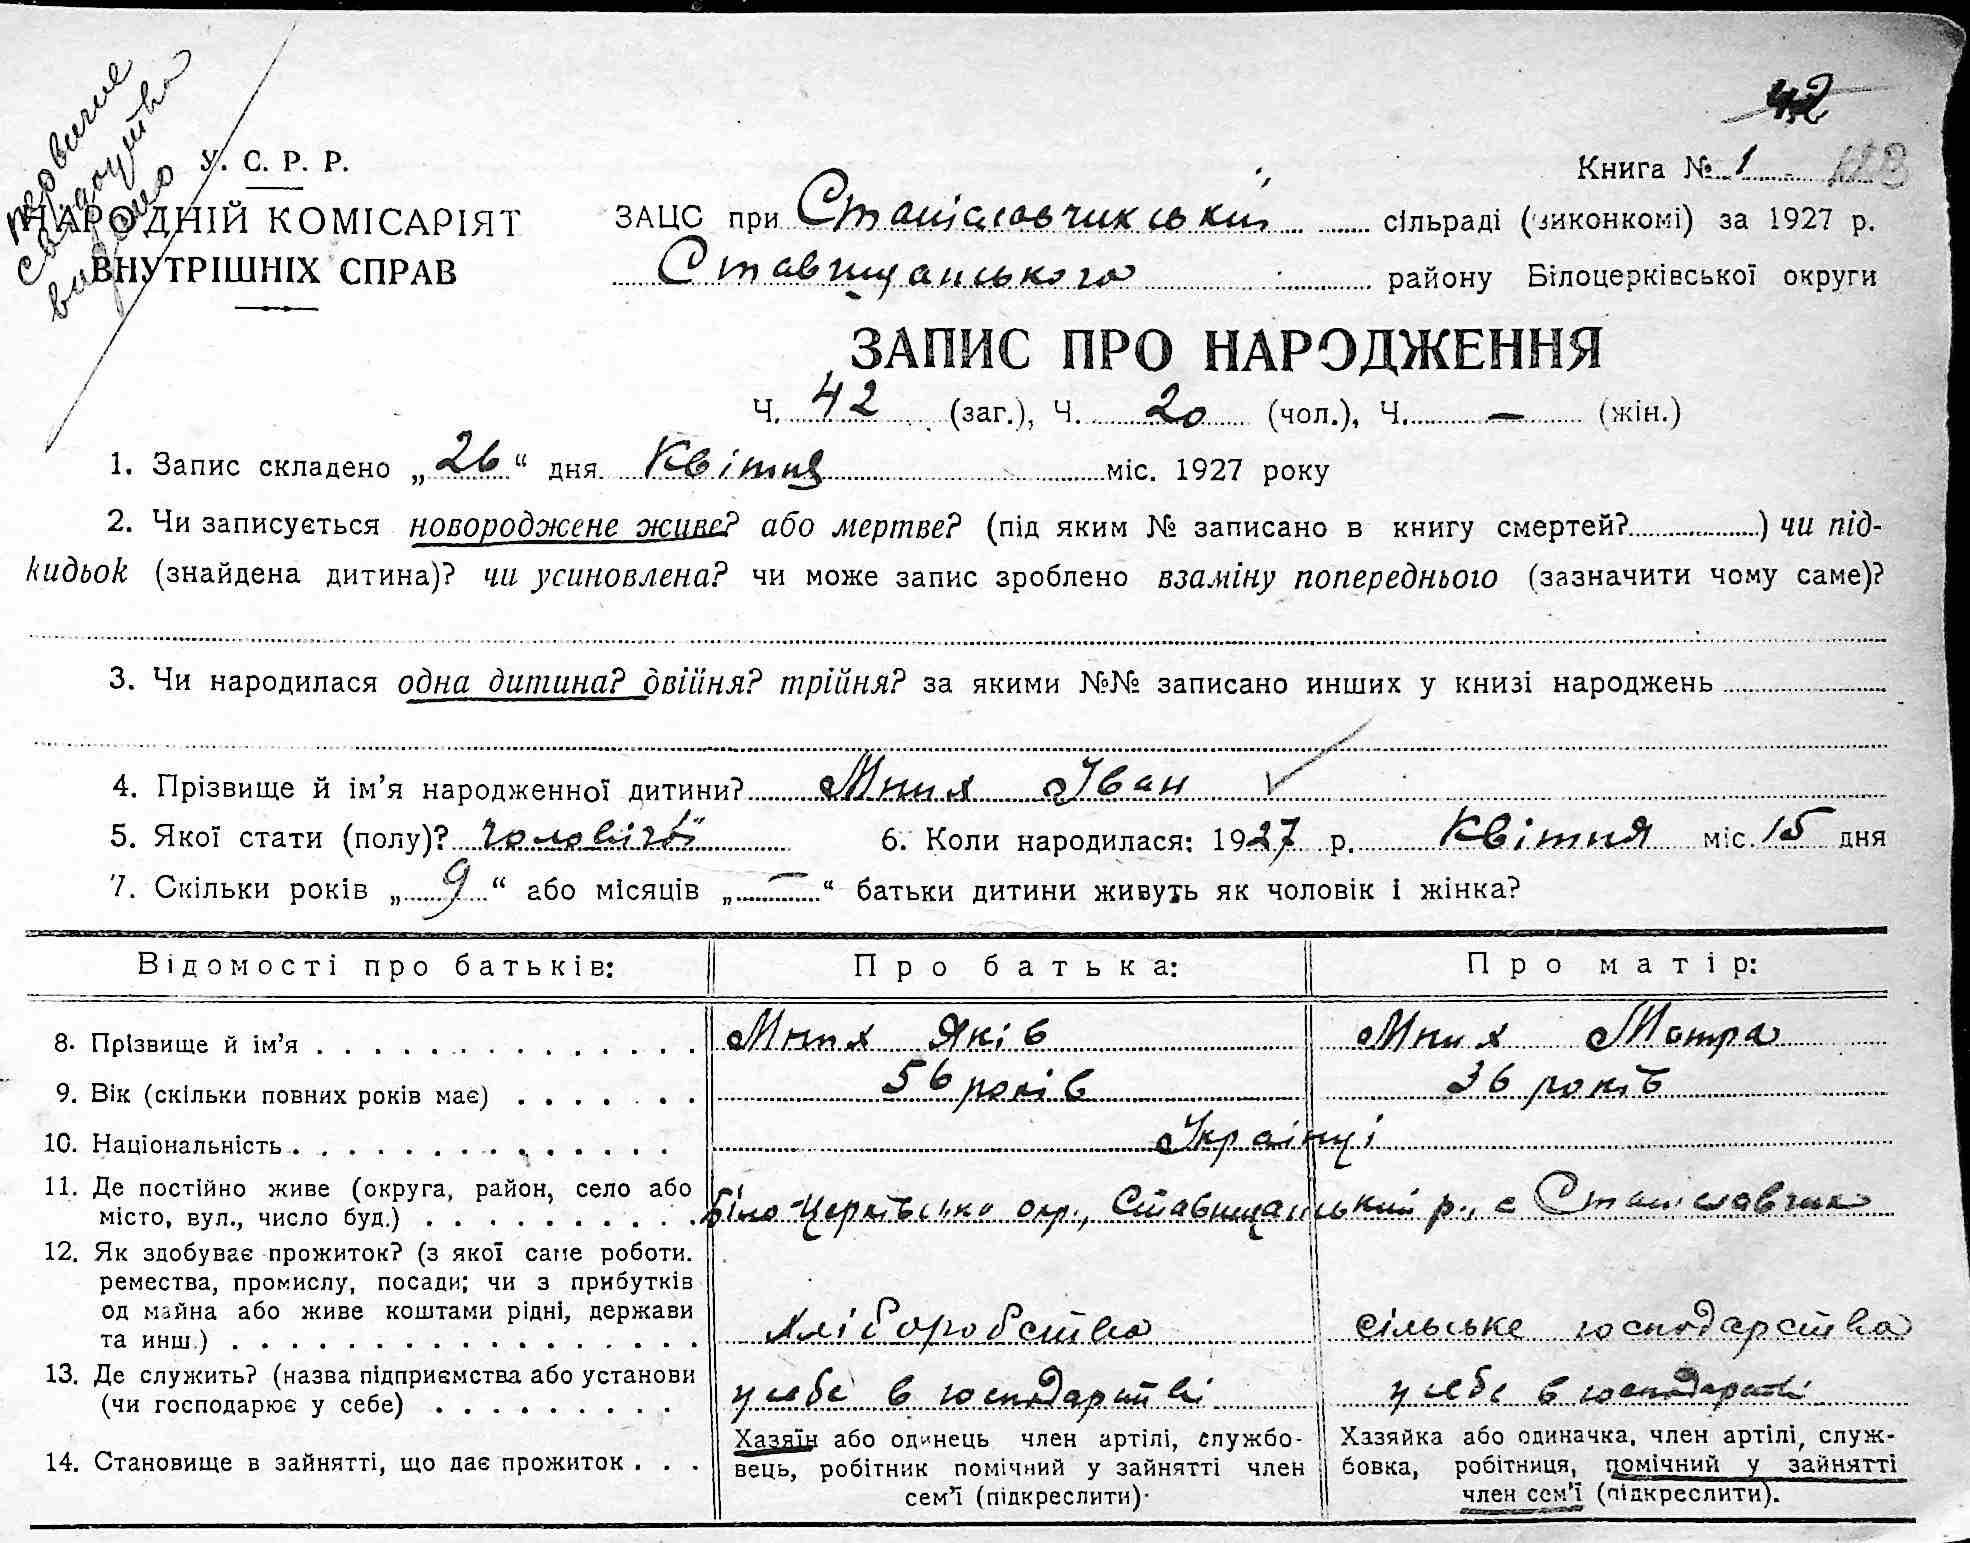 первичне
свідоцтво
видано
42
У. С. Р. Р.
НАРОДНІЙ КОМІСАРІЯТ
ВНУТРІШНІХ СПРАВ
Книга № 1
ЗАЦС при Станіславчикській сільраді (виконкомі) за 1927 р.
Ставищанського району Білоцерківської округи
ЗАПИС ПРО НАРОДЖЕННЯ
Ч. 42 (заг.), Ч. 20 (чол.), Ч. — (жін.)
1. Запис складено „26“ дня Квітня міс. 1927 року
2. Чи записується новороджене живе? або мертве? (під яким № записано в книгу смертей? ) чи під-
кидьок (знайдена дитина)? чи усиновлена? чи може запис зроблено взаміну попереднього (зазначити чому саме)?
3. Чи народилася одна дитина? двійня? трійня? за якими №№ записано инших у книзі народжень
4. Прізвище й ім’я народженної дитини? Мних Іван
5. Якої стати (полу)? чоловічої 6. Коли народилася: 1927 р. Квітня міс. 15 дня
7. Скільки років „9“ або місяців „—“ батьки дитини живуть як чоловік і жінка?
Відомості про батьків: Про батька: Про матір:
8. Прізвище й ім’я Мних Яків Мних Мотра
9. Вік (скільки повних років має) 56 років 36 років
10. Національність Українці
11. Де постійно живе (округа, район, село або
місто, вул., число буд.) Біло-Церківсько окр., Ставищанський р., с Станиславчик
12. Як здобуває прожиток? (з якої саме роботи.
ремества, промислу, посади; чи з прибутків
од майна або живе коштами рідні, держави
та инш.) хліборобство сільське господарство
13. Де служить? (назва підприємства або установи
(чи господарює у себе) у себе в господарстві у себе в господарстві
14. Становище в зайнятті, що дає прожиток
Хазяїн або одинець член артілі, службо-
вець, робітник помічний у зайнятті член
сем’ї (підкреслити).
Хазяйка або одиначка, член артілі, служ-
бовка, робітниця, помічний у зайнятті
член сем’ї (підкреслити).